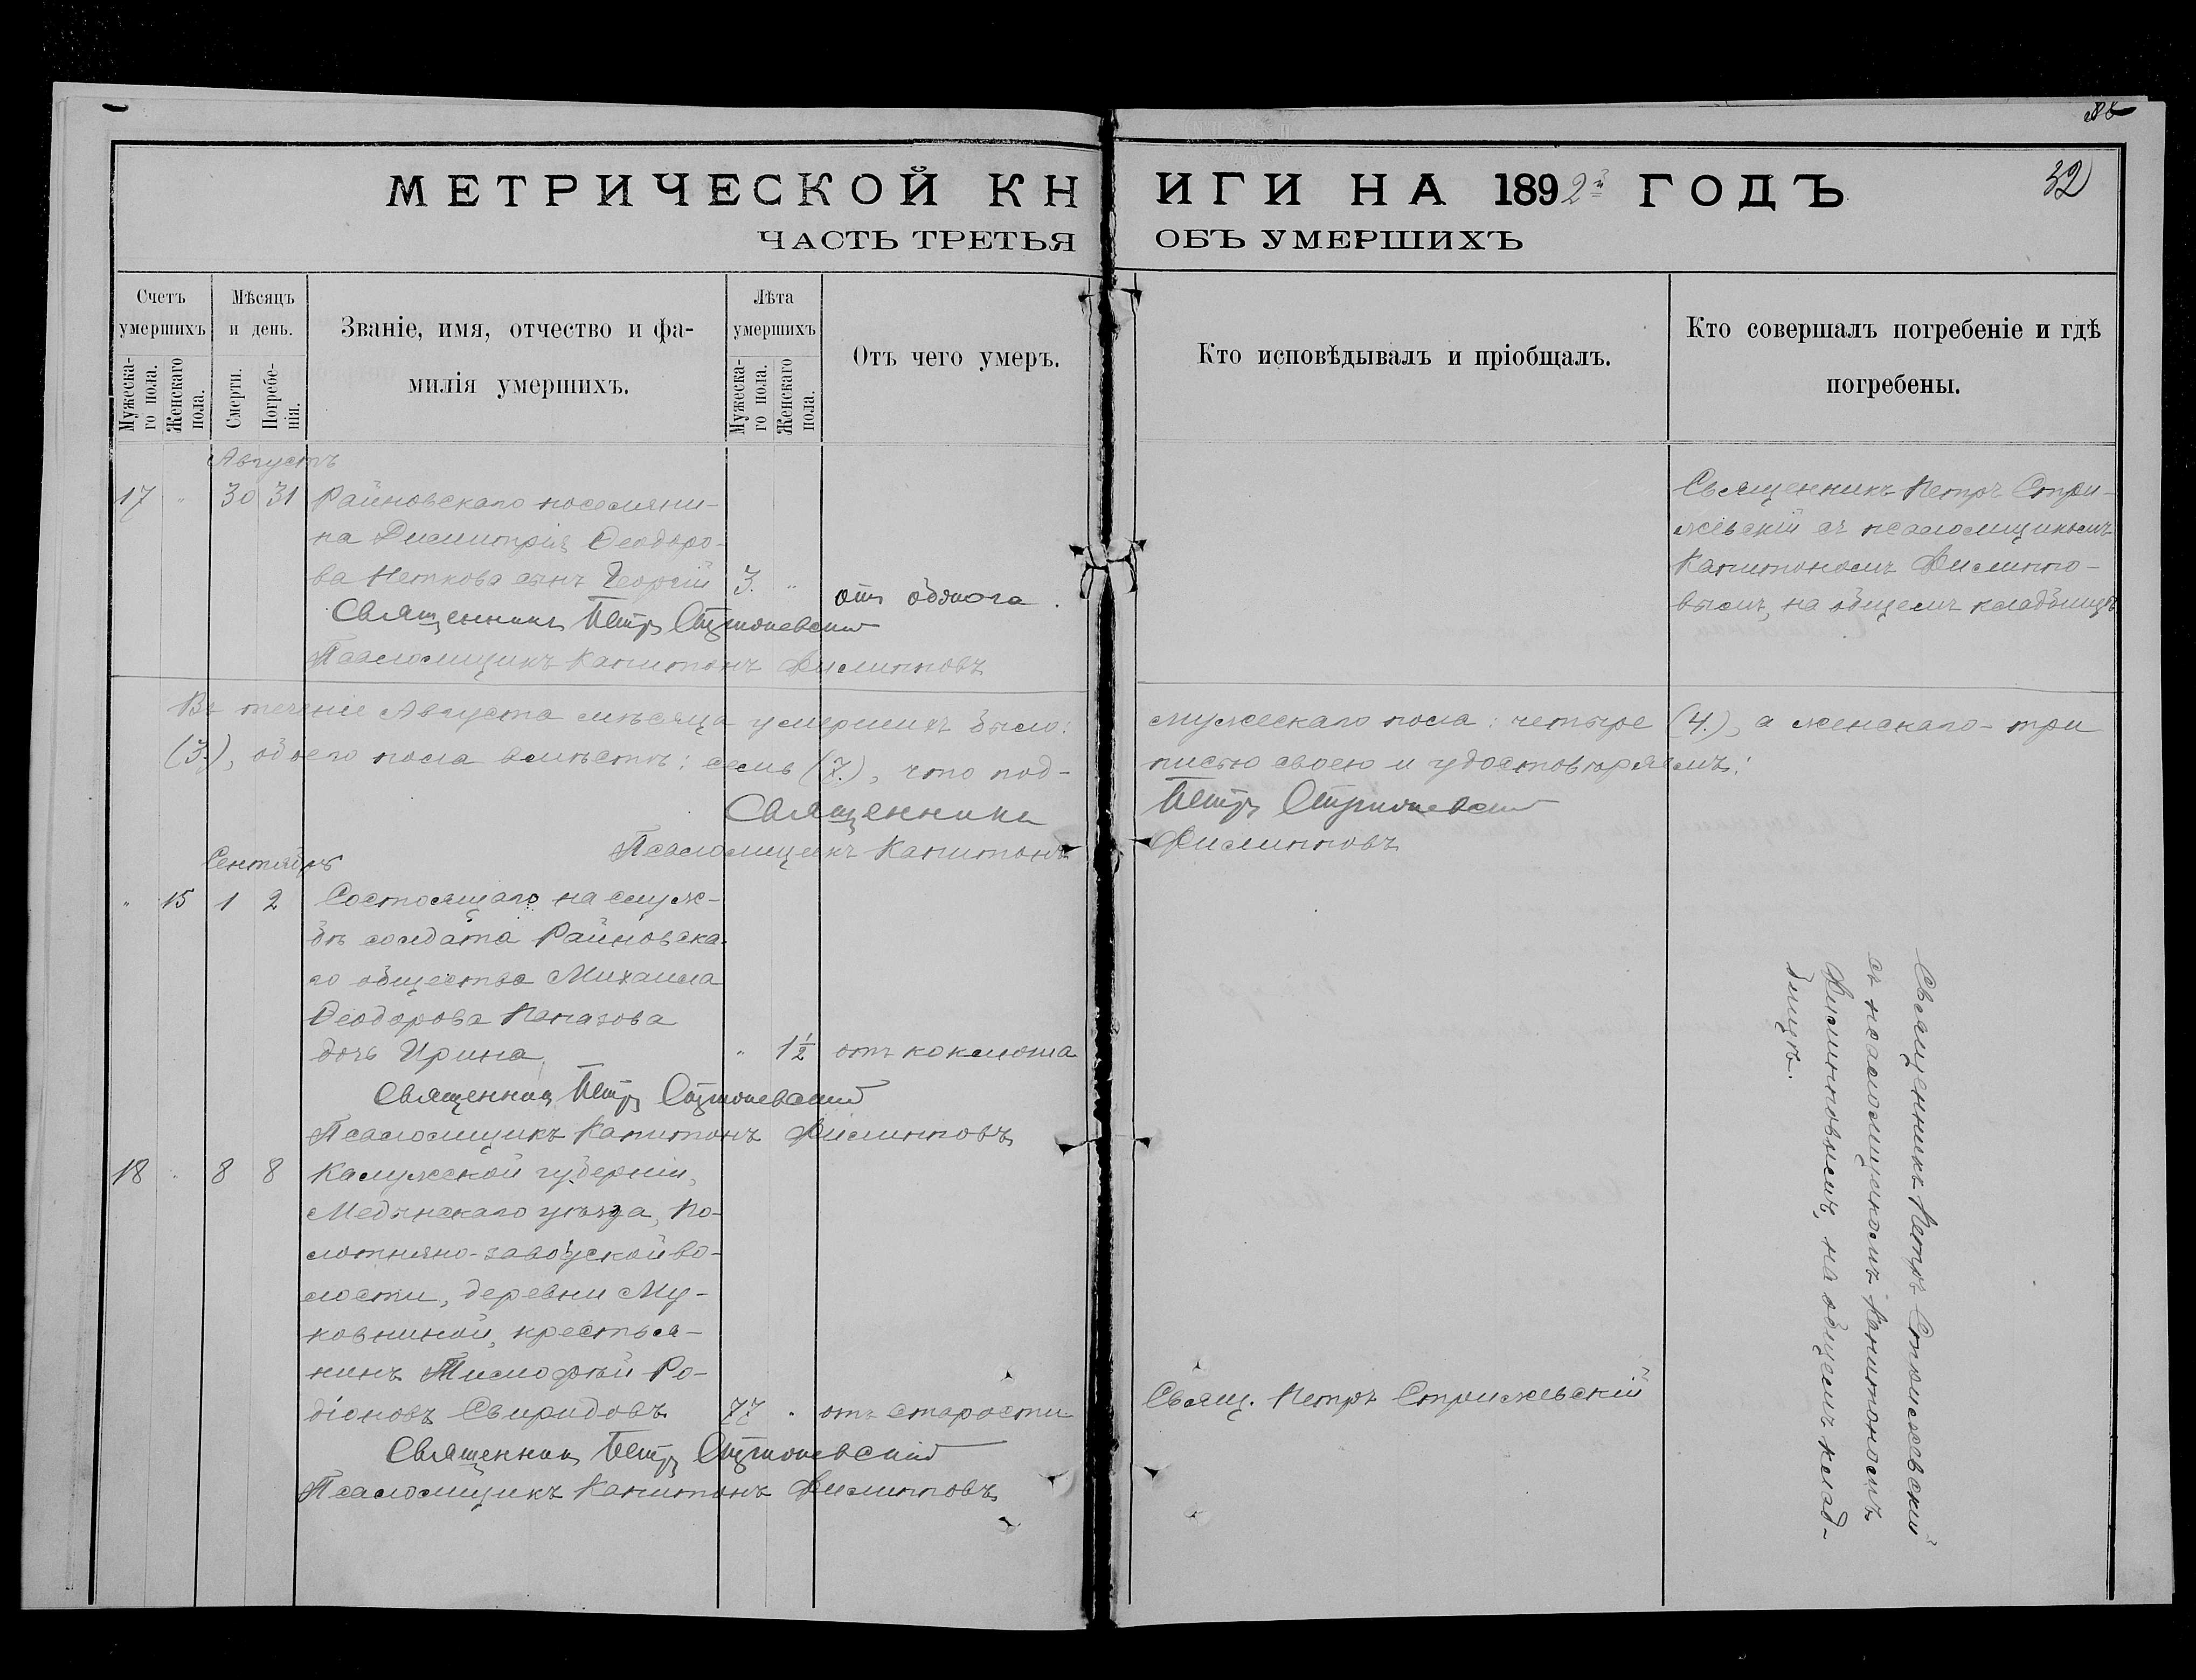 32
МЕТРИЧЕСКОЙ КНИГИ НА 1892й ГОДЪ
ЧАСТЬ ТРЕТЬЯ ОБЪ УМЕРШИХЪ
Счетъ умершихъ
Мужеска-го пола.
Женскаго пола.
Мѣсяцъ и день.
Смерти.
Погребе-нія.
Званіе, имя, отчество и фа-
милія умершихъ.
Лѣта умершихъ
Мужеска-го пола.
Женскаго пола.
Отъ чего умеръ.
Кто исповѣдывалъ и пріобщалъ.
Кто совершалъ погребеніе и гдѣ
погребены.
Августъ
17 " 30 31 Райновскаго поселяни-
на Димитрія Ѳеодоро-
ва Неткова сынъ Георгій 3. " отъ
Священникъ Петръ Стрижевскій
Псаломщикъ Капитонъ Филипповъ
Священникъ Петръ Стри-
жевскій съ псаломщикомъ
Капитономъ Филиппо-
вымъ, на общемъ кладбищѣ
Въ теченіе Августа мѣсяца умершихъ было: мужескаго пола: четыре (4.), а женскаго - три
(3.), обоего пола вмѣстѣ: семь (7.), что под-писью своею и удостовѣряемъ:
Священникъ Петръ Стрижевскій
Псаломщикъ Капитонъ Филипповъ
Сентябрь
" 15 1 2 Состоящаго на служ-
бѣ солдата Райновска-
го общества Михаила
Ѳеодорова Паназова
дочь Ирина " 1½ отъ коклюша
Священникъ Петръ Стрижевскій
Псаломщикъ Капитонъ Филипповъ
18 " 8 8 Калужской губерніи,
Медынскаго уѣзда, По-
лотняно-заводской во-
лости, деревни Му-
ковниной, крестья-
нинъ Тимофей Ро-
діоновъ Свиридовъ 77 " отъ старости
Свящ. Петръ Стрижевскій
Священникъ Петръ Стрижевскій
Псаломщикъ Капитонъ Филипповъ
Священникъ Петръ Стрижевскій
съ псаломщикомъ Капитономъ
Филипповымъ, на общемъ клад-
бищѣ.